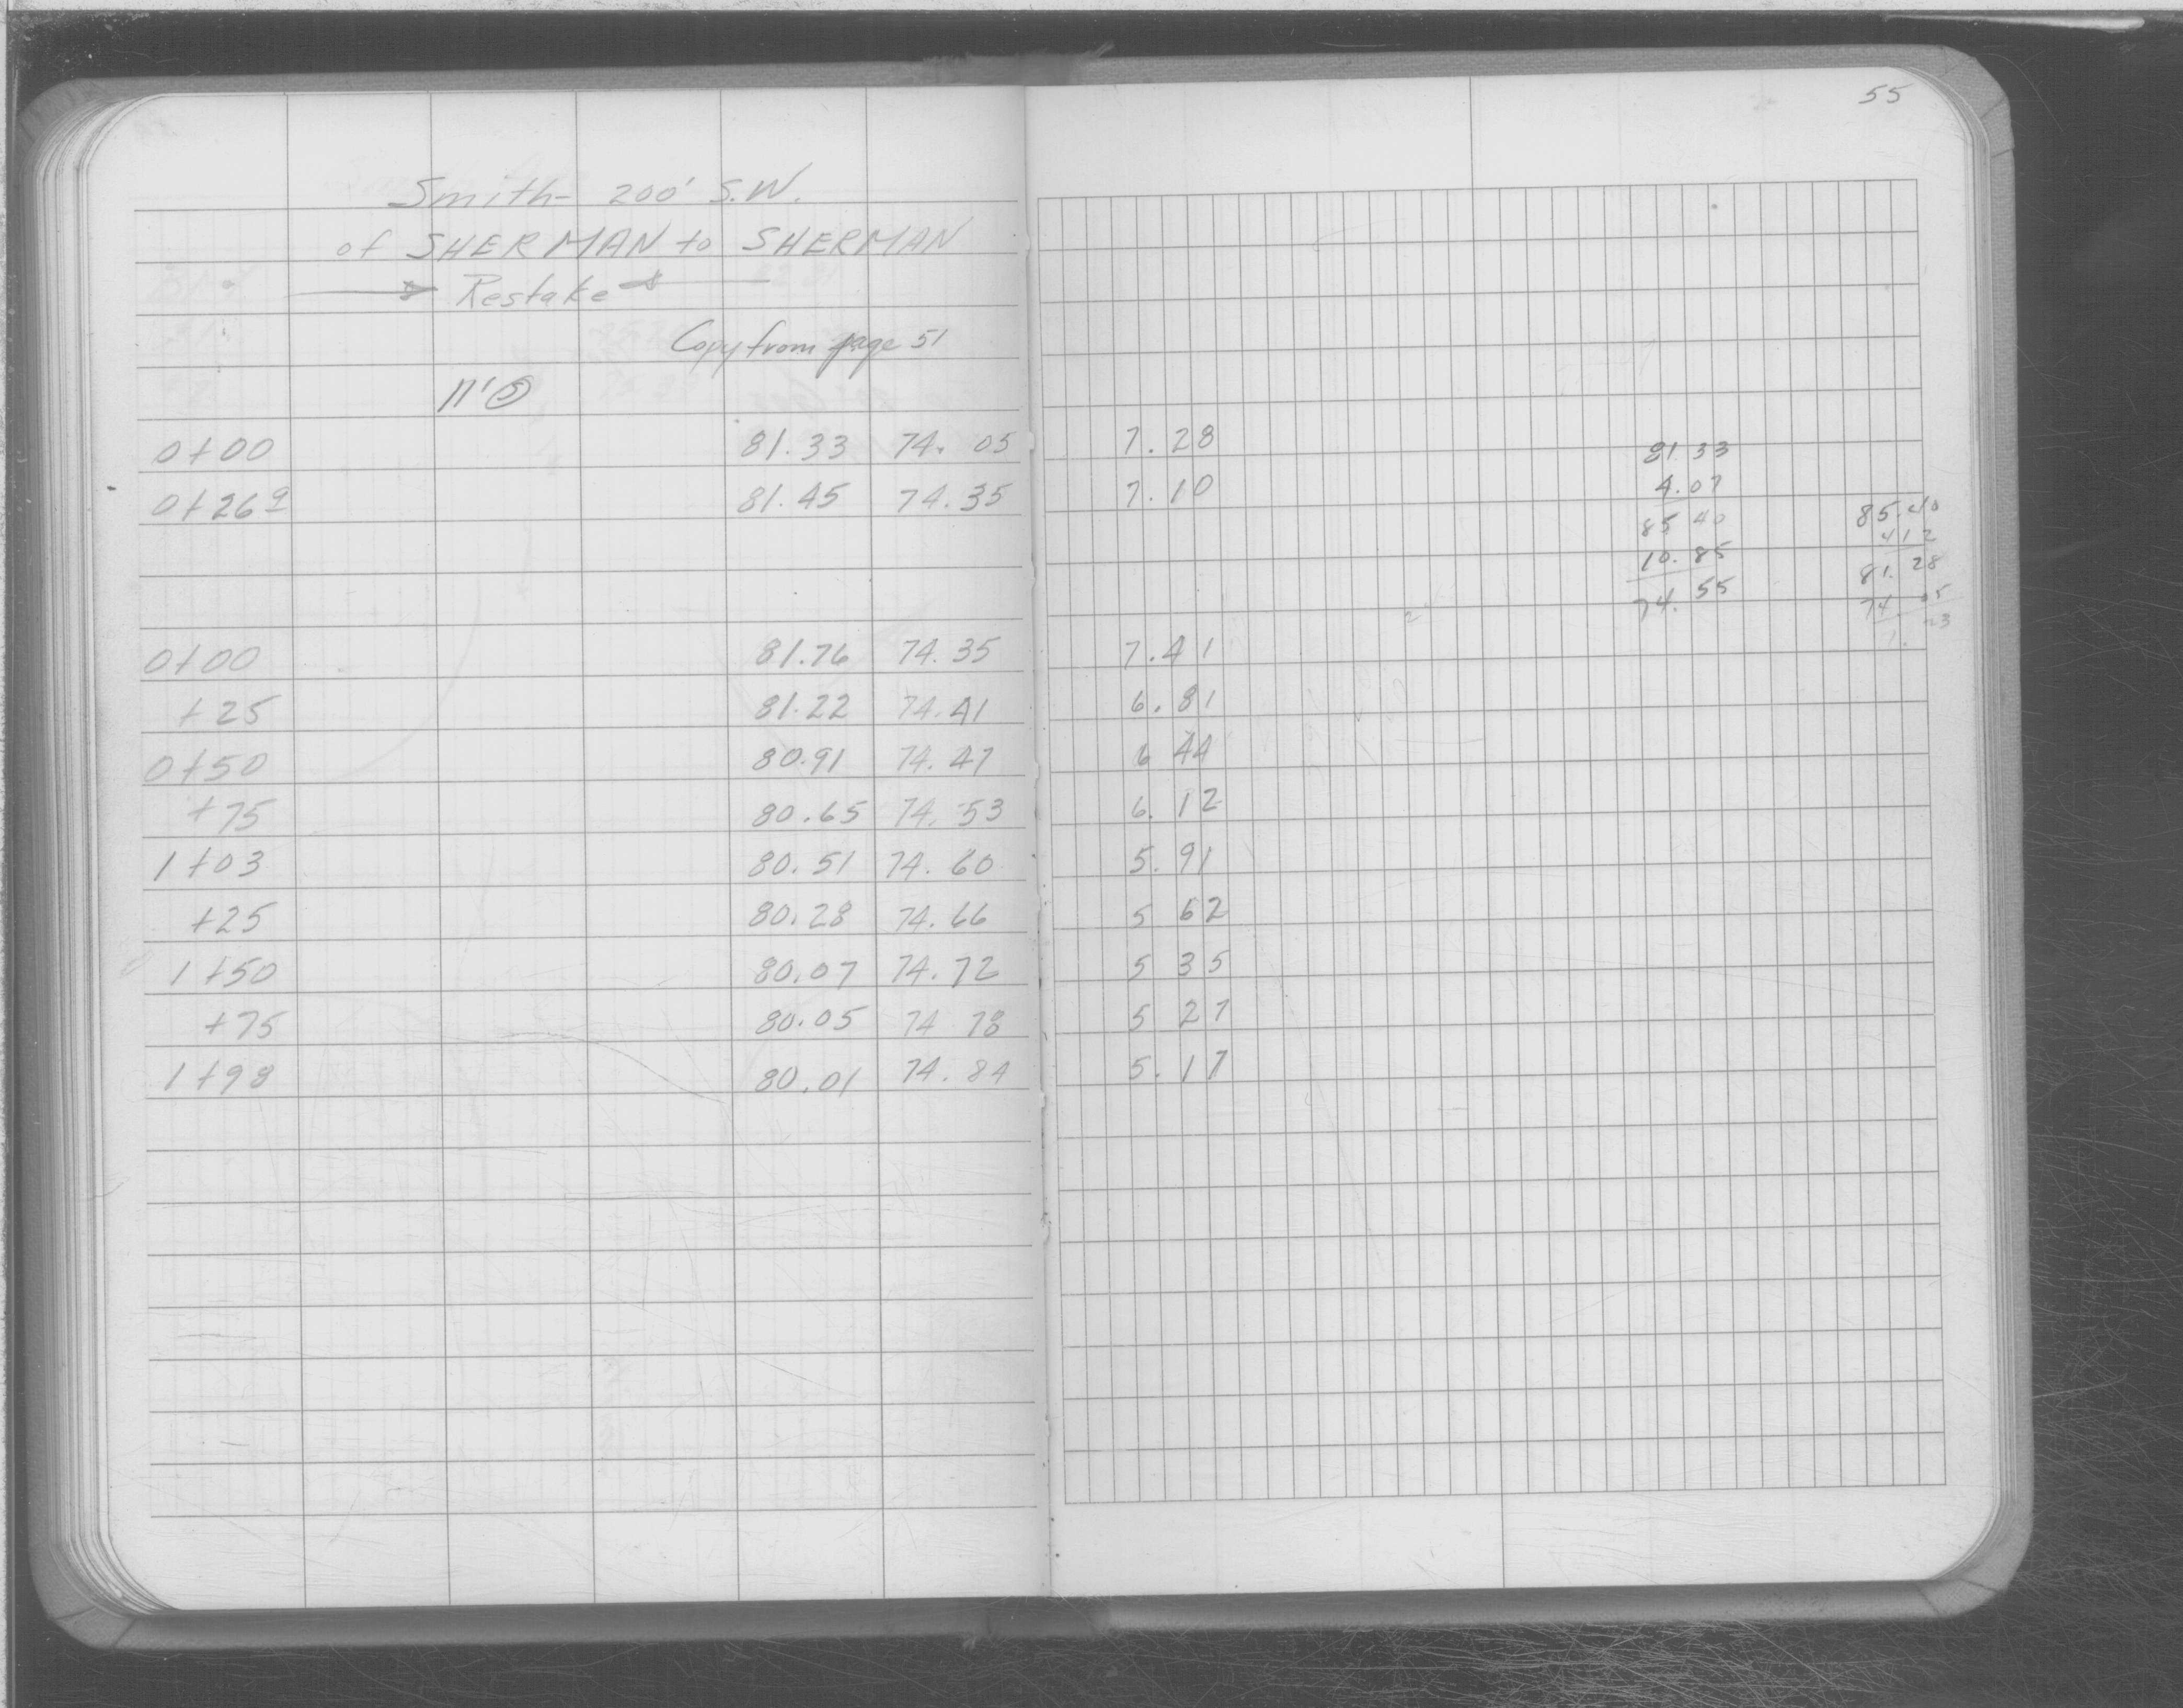 55
Smith- 200' S.W.
of SHERMAN to SHERMAN
Restake
Copy from page 51
11'
0+00 81.33 74.05 7.28
0+26 9 81.45 74.35 7.10
0+00 81.76 74.35 7.41
+25 81.22 74.41 6.81
0+50 80.91 74.47 6 44
+75 80.65 74.53 6.12
1+03 80.51 74.60 5.91
+25 80.28 74.66 5 62
1+50 80.07 74.72 5 35
+75 80.05 74 78 5 27
1+98 80.01 74.84 5.17
81 33
4.07
85 40
10.85
74.55
85.40
412
81.28
74 05